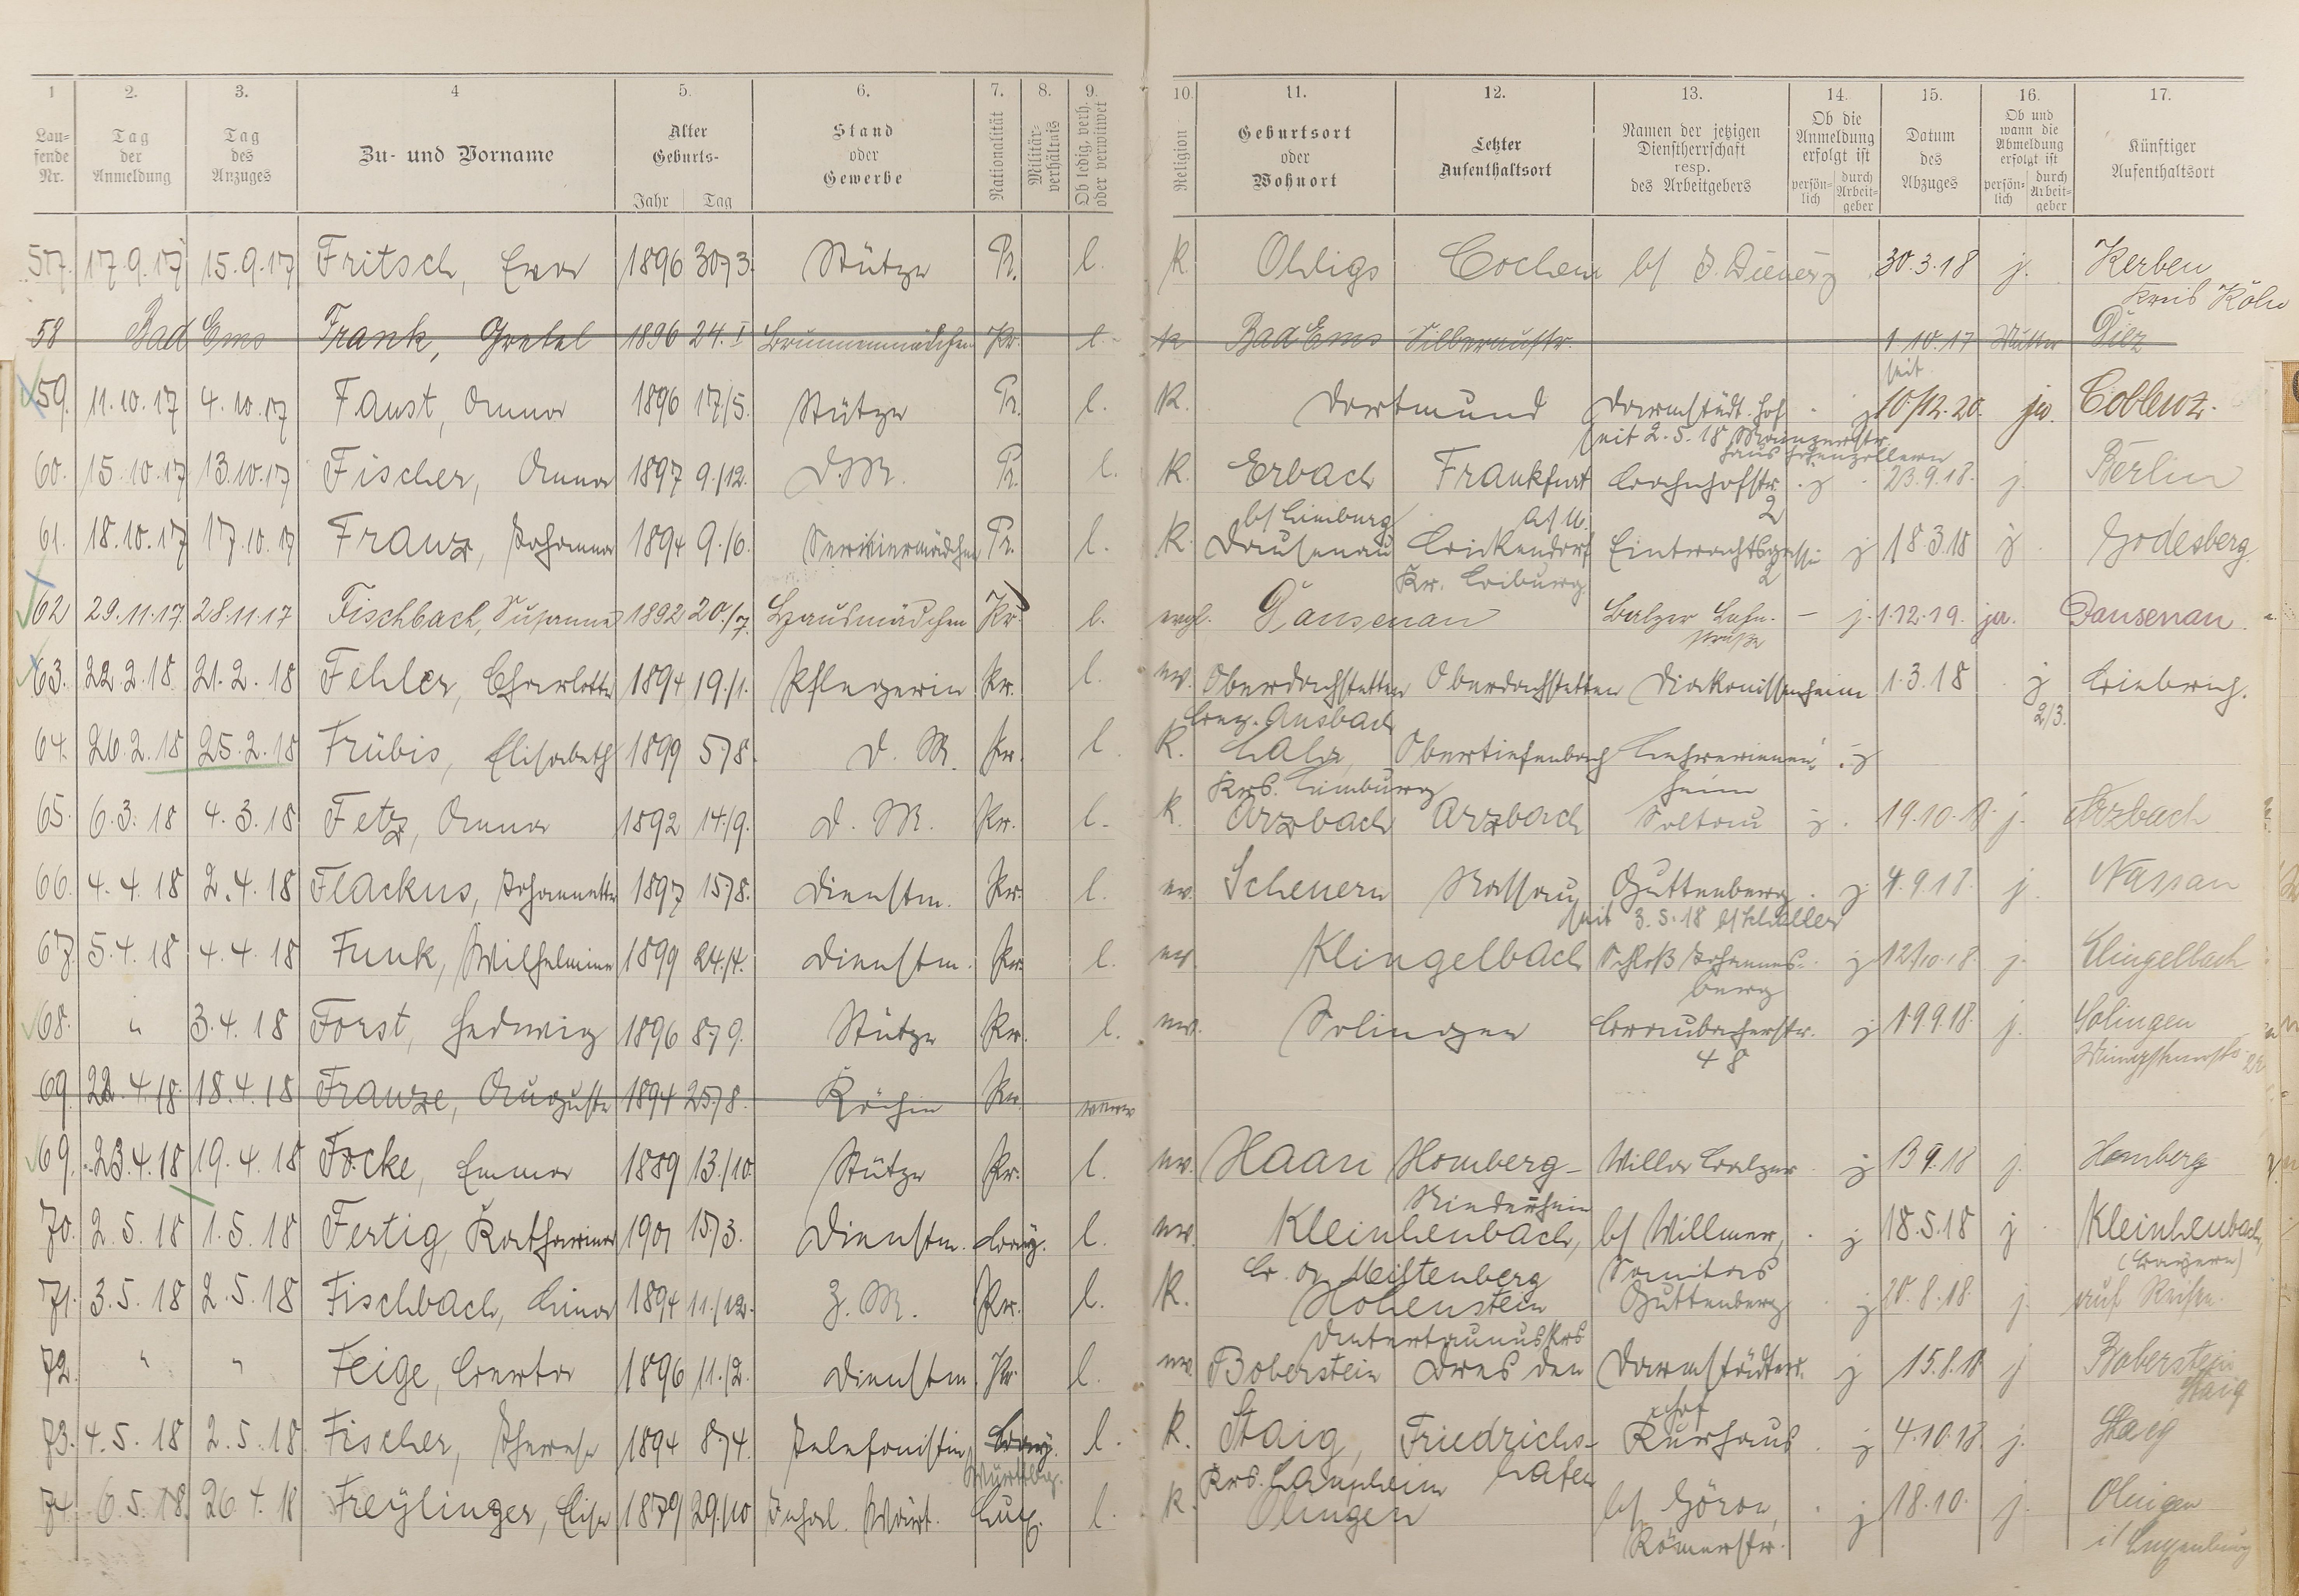 1 2. 3. 4 5. 6. 7. 8. 9. 10. 11. 12. 13. 14. 15. 16. 17.
Lau-
fende
Nr.
Tag
der
Anmeldung
Tag
des
Anzuges
Zu- und Vorname
Alter
Geburts-
Jahr Tag
Stand
oder
Gewerbe
Nationalität
Militär-
verhältnis
Ob ledig, verh.
oder verwitwet
Religion
Geburtsort
oder
Wohnort
Letzter
Aufenthaltsort
Namen der jetzigen
Dienstherrschaft
resp.
des Arbeitgebers
Ob die
Anmeldung
erfolgt ist
persön-
lich
durch
Arbeit-
geber
Datum
des
Abzuges
Ob und
wann die
Abmeldung
erfolgt ist
persön-
lich
durch
Arbeit-
geber
Künftiger
Aufenthaltsort
57. 17.9.17 15.9.17 Fritsch, Eva 1896 30/3. Stütze Pr. l. K. Ohligs Cochem b/ 30.3.18 j. Kerben
Kreis Köln
58 Bad Ems Frank, Gretel 1896 24.I Brunnenmädchen Pr. l. K Bad Ems Silberaustr. 1.10.17 Mutter Diez
59. 11.10.17 4.10.17 Faust, Anna 1896 17/5. Stütze Pr. l. K. Dortmund Darmstädt. Hof j seit 10/12.20. ja. Coblenz.
seit 2.5.18 Mainzerstr.
Haus Hohenzollern
60. 15.10.17 13.10.17 Fischer, Anna 1897 9./12. D.M. Pr. l. K. Erbach Frankfurt Bachnhofstr. j 23.9.18. j. Berlin
b/ Limburg a/M. 2
61. 18.10.17 17.10.17 Franz, Johanna 1894 9./6. Serviermädchen Pr. l. K. Dausenau Birkendorf Eintrachtsgasse j 18.3.18 j Godesberg.
Kr. Bitburg 2
62 29.11.17. 28.11.17 Fischbach, Susanne 1892 20./7. Hausmädchen Pr. l. evgl. Dausenau Balzer Lahn- – j. 1.12.19. ja. Dausenau
straße
63. 22.2.18 21.2.18 Fehler, Charlotte 1894 19./1. Pflegerin Pr. l. ev. Oberdachstetten Oberdachstetten Diakonissenheim 1.3.18 j Biebrich.
Bez. Ansbach 2/3.
64. 26.2.18 25.2.18 Frübis, Elisabeth 1899 5/8. D. M. Pr. l. K. Lahr, Obertiefenbach Lehrerinnen- j
Krs. Limburg heim
65. 6.3.18 4.3.18 Fetz, Anna 1892 14./9. D. M. Pr. l. K. Arzbach Arzbach Soltau j 19.10.18. j. Arzbach
66. 4.4.18 2.4.18 Flackus, Johannette 1897 15/8. Dienstm. Pr. l. ev. Scheuern Nassau Guttenberg j 4.9.18. j. Nassau
seit 3.5.18 b/ Müller
67. 5.4.18 4.4.18 Funk, Wilhelmine 1899 24./4. Dienstm. Pr. l. ev. Klingelbach Schloß Johannes- j 12/10.18. j. Klingelbach
berg
68. " 3.4.18 Forst, Hedwig 1896 8/9. Stütze Pr. l. ev. Solingen Braubacherstr. j 19.9.18. j. Solingen
48
69. 22.4.18 18.4.18 Franze, Auguste 1894 25/8. Köchin Pr.
69. 23.4.18 19.4.18 Focke, Emma 1889 13./10. Stütze Pr. l. ev. Haan Homberg- Villa Balzer j 13.9.18 j. Homberg
Niederrhein
70. 2.5.18 1.5.18 Fertig, Katharina 1901 15/3. Dienstm. Bay. l. ev. Kleinheubach, b/ Willmer, j 18.5.18 j Kleinheubach,
(Bayern)
71. 3.5.18 2.5.18 Fischbach, Lina 1894 11./12. Z. M. Pr. l. K. Hohenstein Guttenberg j 20.8.18. j. auf Reisen.
Untertaunuskrs
72. " " Feige, Berta 1896 11./2. Dienstm. Pr. l. ev. Boberstein Dresden Darmstädter j 15.8.18 j Boberstein
hof
73. 4.5.18 2.5.18. Fischer, Therese 1894 8/4. Telefonistin Bay. l. K. Staig, Friedrichs- Kurhaus j 4.10.18. j. Staig
Württbg. Krs. Laupheim hafen
74. 6.5.18. 26.4.18 Freylinger, Elise 1879 29./10 Lux. l. K. Olingen b/ Göron, j 18.10. j. Olingen
Römerstr. i/ Luxemburg